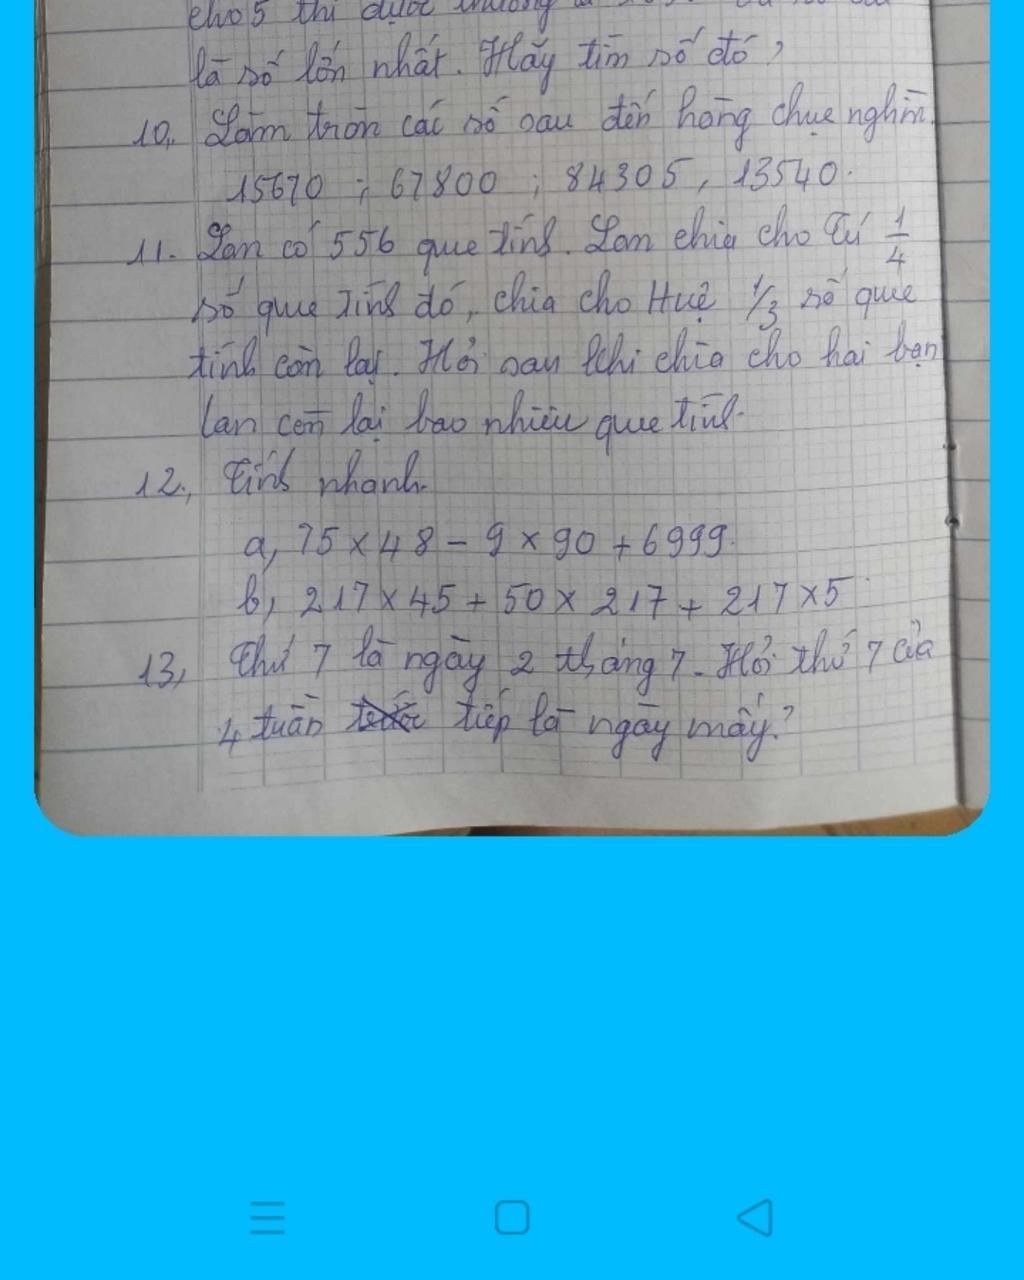 cho 5 thì được thương
là số lớn nhất. Hãy tìm số đó?
10, Làm tròn các số sau đến hàng chục nghìn.
15670 ; 67800 ; 84305, 13540.
11. Lan có 556 que tính. Lan chia cho Tú 1/4
số que tính đó, chia cho Huệ 1/3 số que
tính còn lại. Hỏi sau khi chia cho hai bạn
Lan còn lại bao nhiêu que tính.
12, Tính nhanh.
a, 75 × 48 - 9 × 90 + 6999.
b, 217 × 45 + 50 × 217 + 217 × 5
13, Thứ 7 là ngày 2 tháng 7. Hỏi thứ 7 của
4 tuần tiếp là ngày mấy?